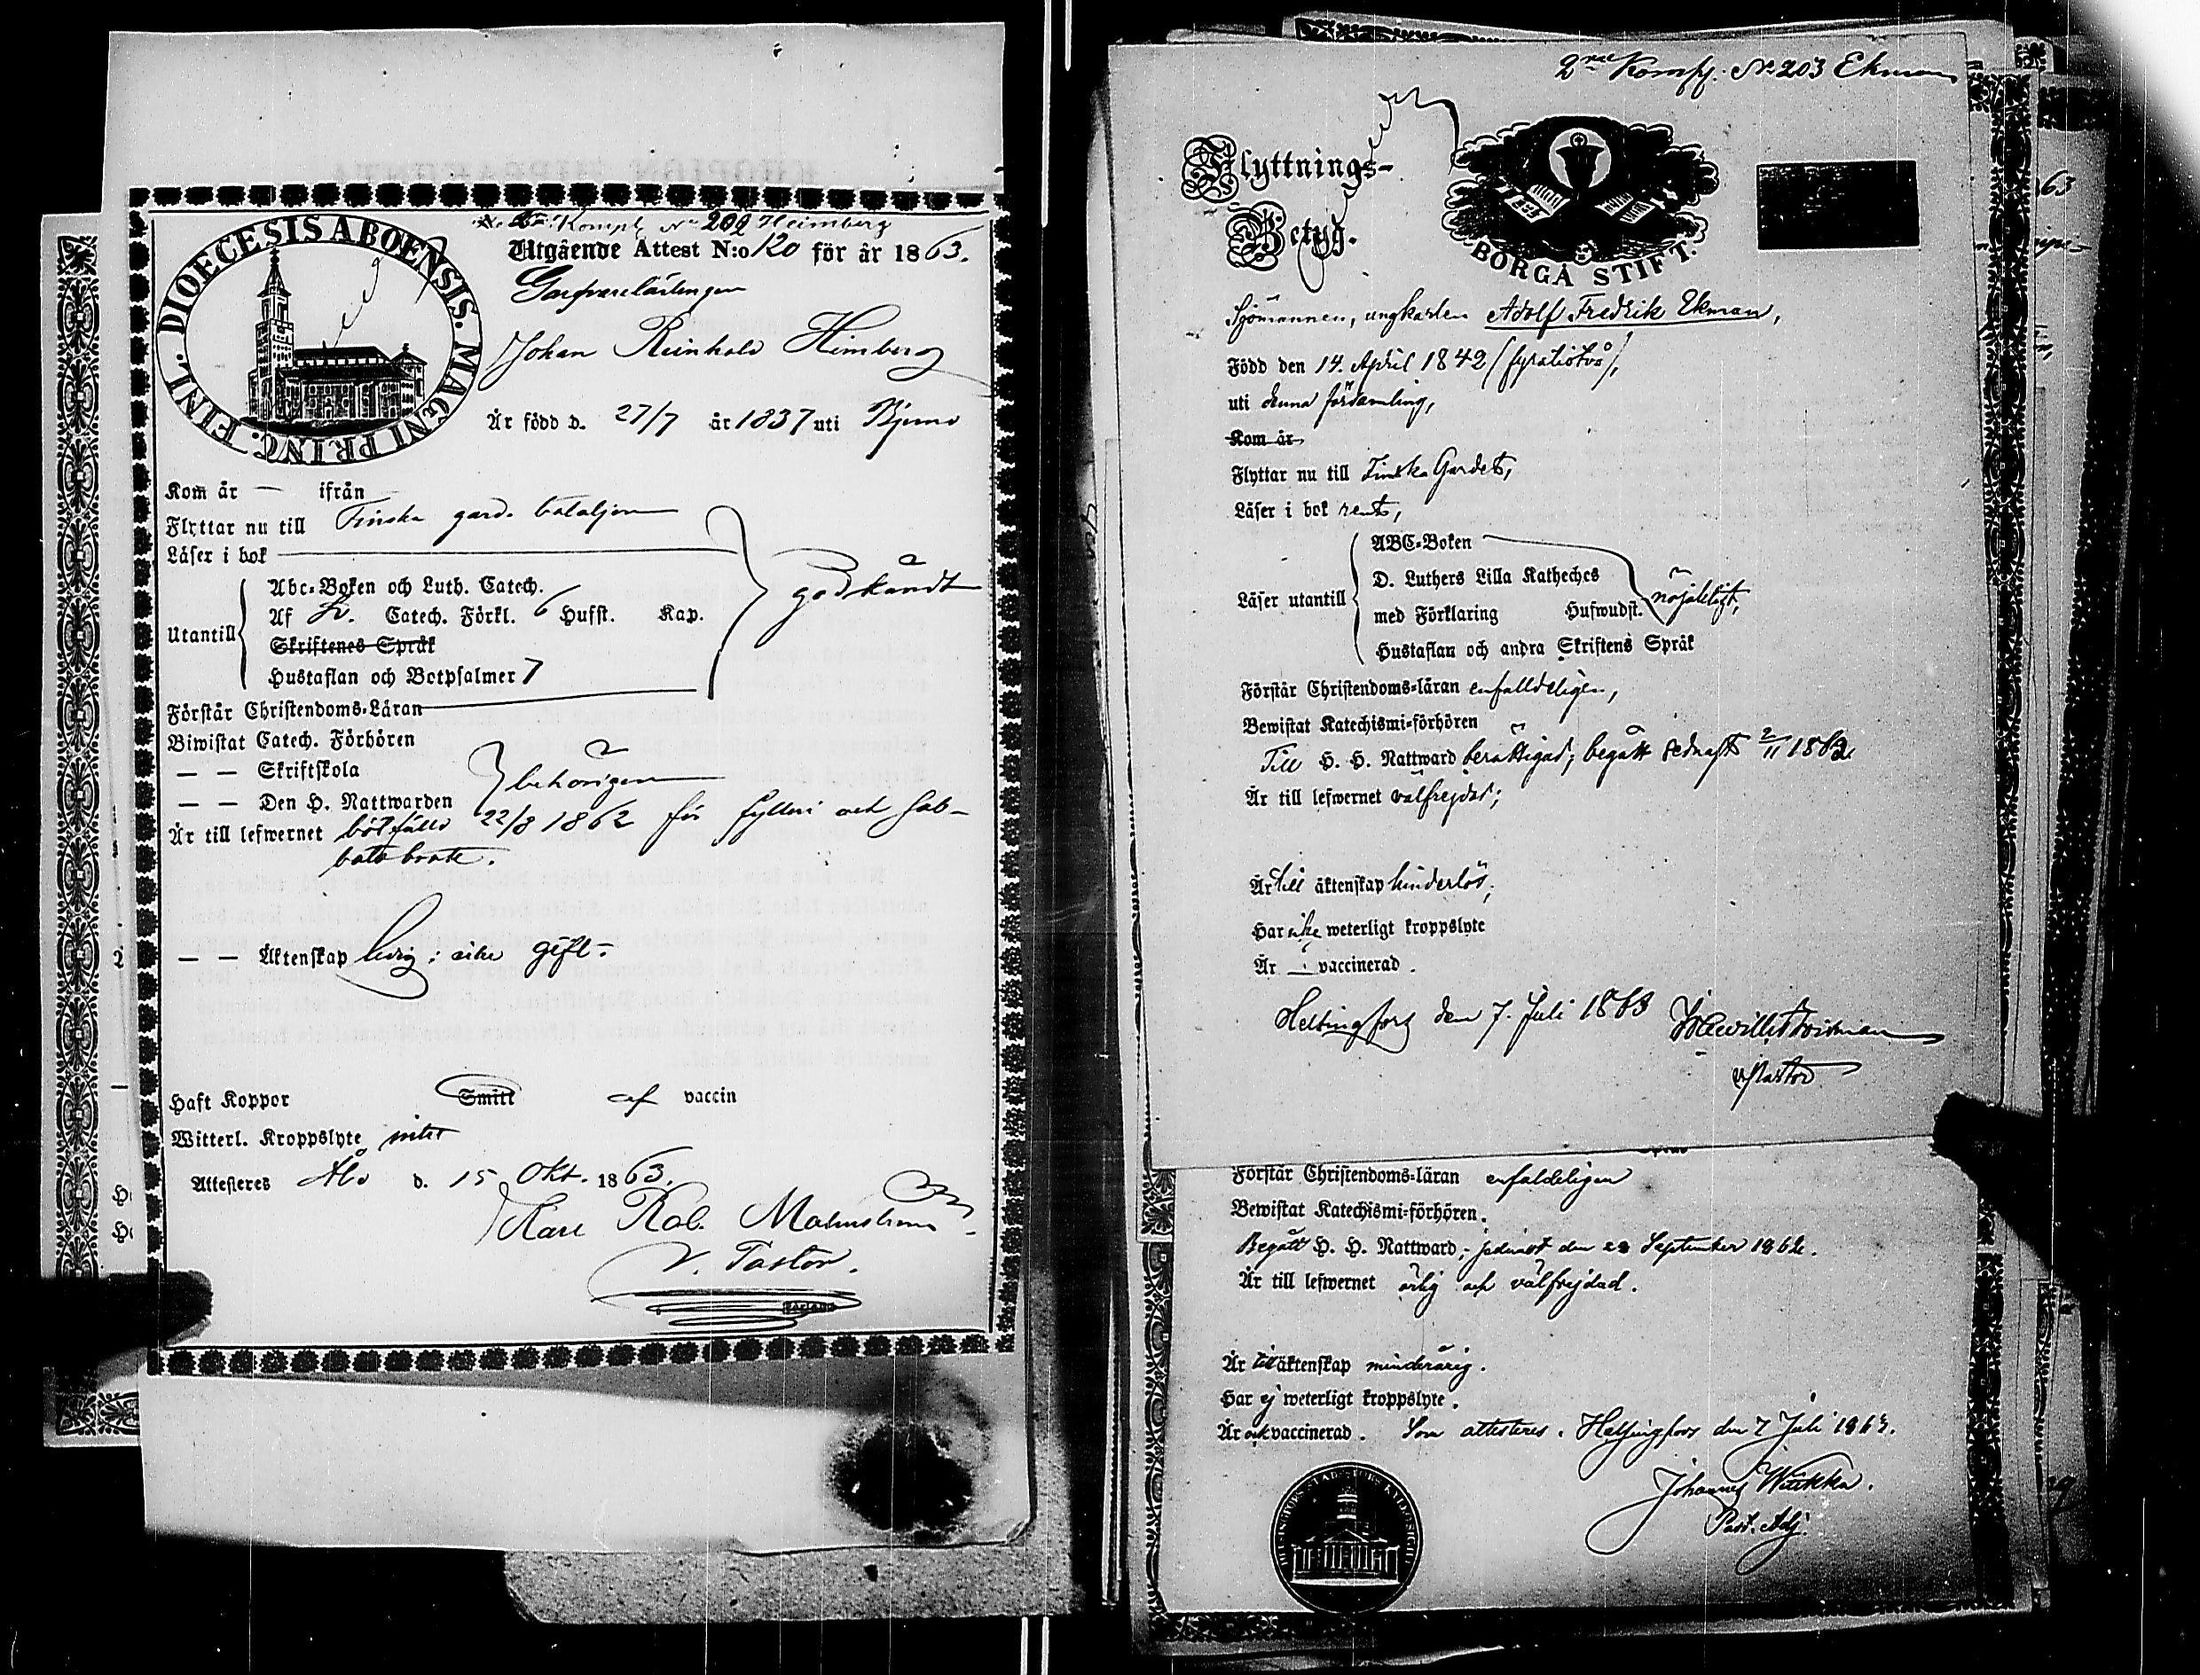 DIOECESIS ABOENSIS. MAGNI PRINC. FINL.
Komp. No 202 Heimberg
Utgående Attest N:o 120 för år 1863.
Garfvarelärlingen
Johan Reinhold Heimberg
Är född d. 27/7 år 1837 uti Bjerno
Kom år — ifrån
Flyttar nu till Finska gard. bataljon
Läser i bok
Utantill
Abc-Boken och Luth. Catech.
Af Sv. Catech. Förkl. 6 Hufst. Kap.
Skriftenes Språk
Hustaflan och Botpsalmer 7
godkändt
Förstår Christendoms-Läran
Biwistat Catech. Förhören
— — Skriftskola
— — Den H. Nattwarden
behörigen
Är till lefwernet bötfälld 22/8 1862 för fylleri och sab-
batsbrott.
— — Äktenskap ledig: icke gift.
Haft Koppor Smitt af vaccin
Witterl. Kroppslyte intet
Attesteras Åbo d. 15 Okt. 1863.
Karl Rob. Malmström
V. Pastor.
2ra Komp. No 203 Ekman
Flyttnings-
Betyg.
BORGÅ STIFT.
Sjömannen, ungkarlen Adolf Fredrik Ekman,
Född den 14. April 1842 (fyratiotvå),
uti denna församling,
Kom år
Flyttar nu till Finska Gardet,
Läser i bok rent,
Läser utantill
ABC-Boken
D. Luthers Lilla Katheches
med Förklaring Hufwudst.
Hustaflan och andra Skriftens Språk
nöjaktigt,
Förstår Christendoms-läran enfalldeligen,
Bewistat Katechismi-förhören
Till H. H. Nattward berättigad, begått sednast 2/11 1862
Är till lefwernet välfrejdad;
Är till äktenskap hinderlös;
Har icke weterligt kroppslyte
Är — vaccinerad.
Helsingfors den 7. Juli 1863
v. Pastor
Förstår Christendoms-läran enfaldeligen
Bewistat Katechismi-förhören.
Begått H. H. Nattward, sednast den September 1862.
Är till lefwernet ärlig och välfrejdad.
Är till äktenskap minderårig.
Har ej weterligt kroppslyte.
Är och vaccinerad. Som attesteras. Helsingfors den 7 Juli 1863.
Johannes Wiikka.
Past. Adj.